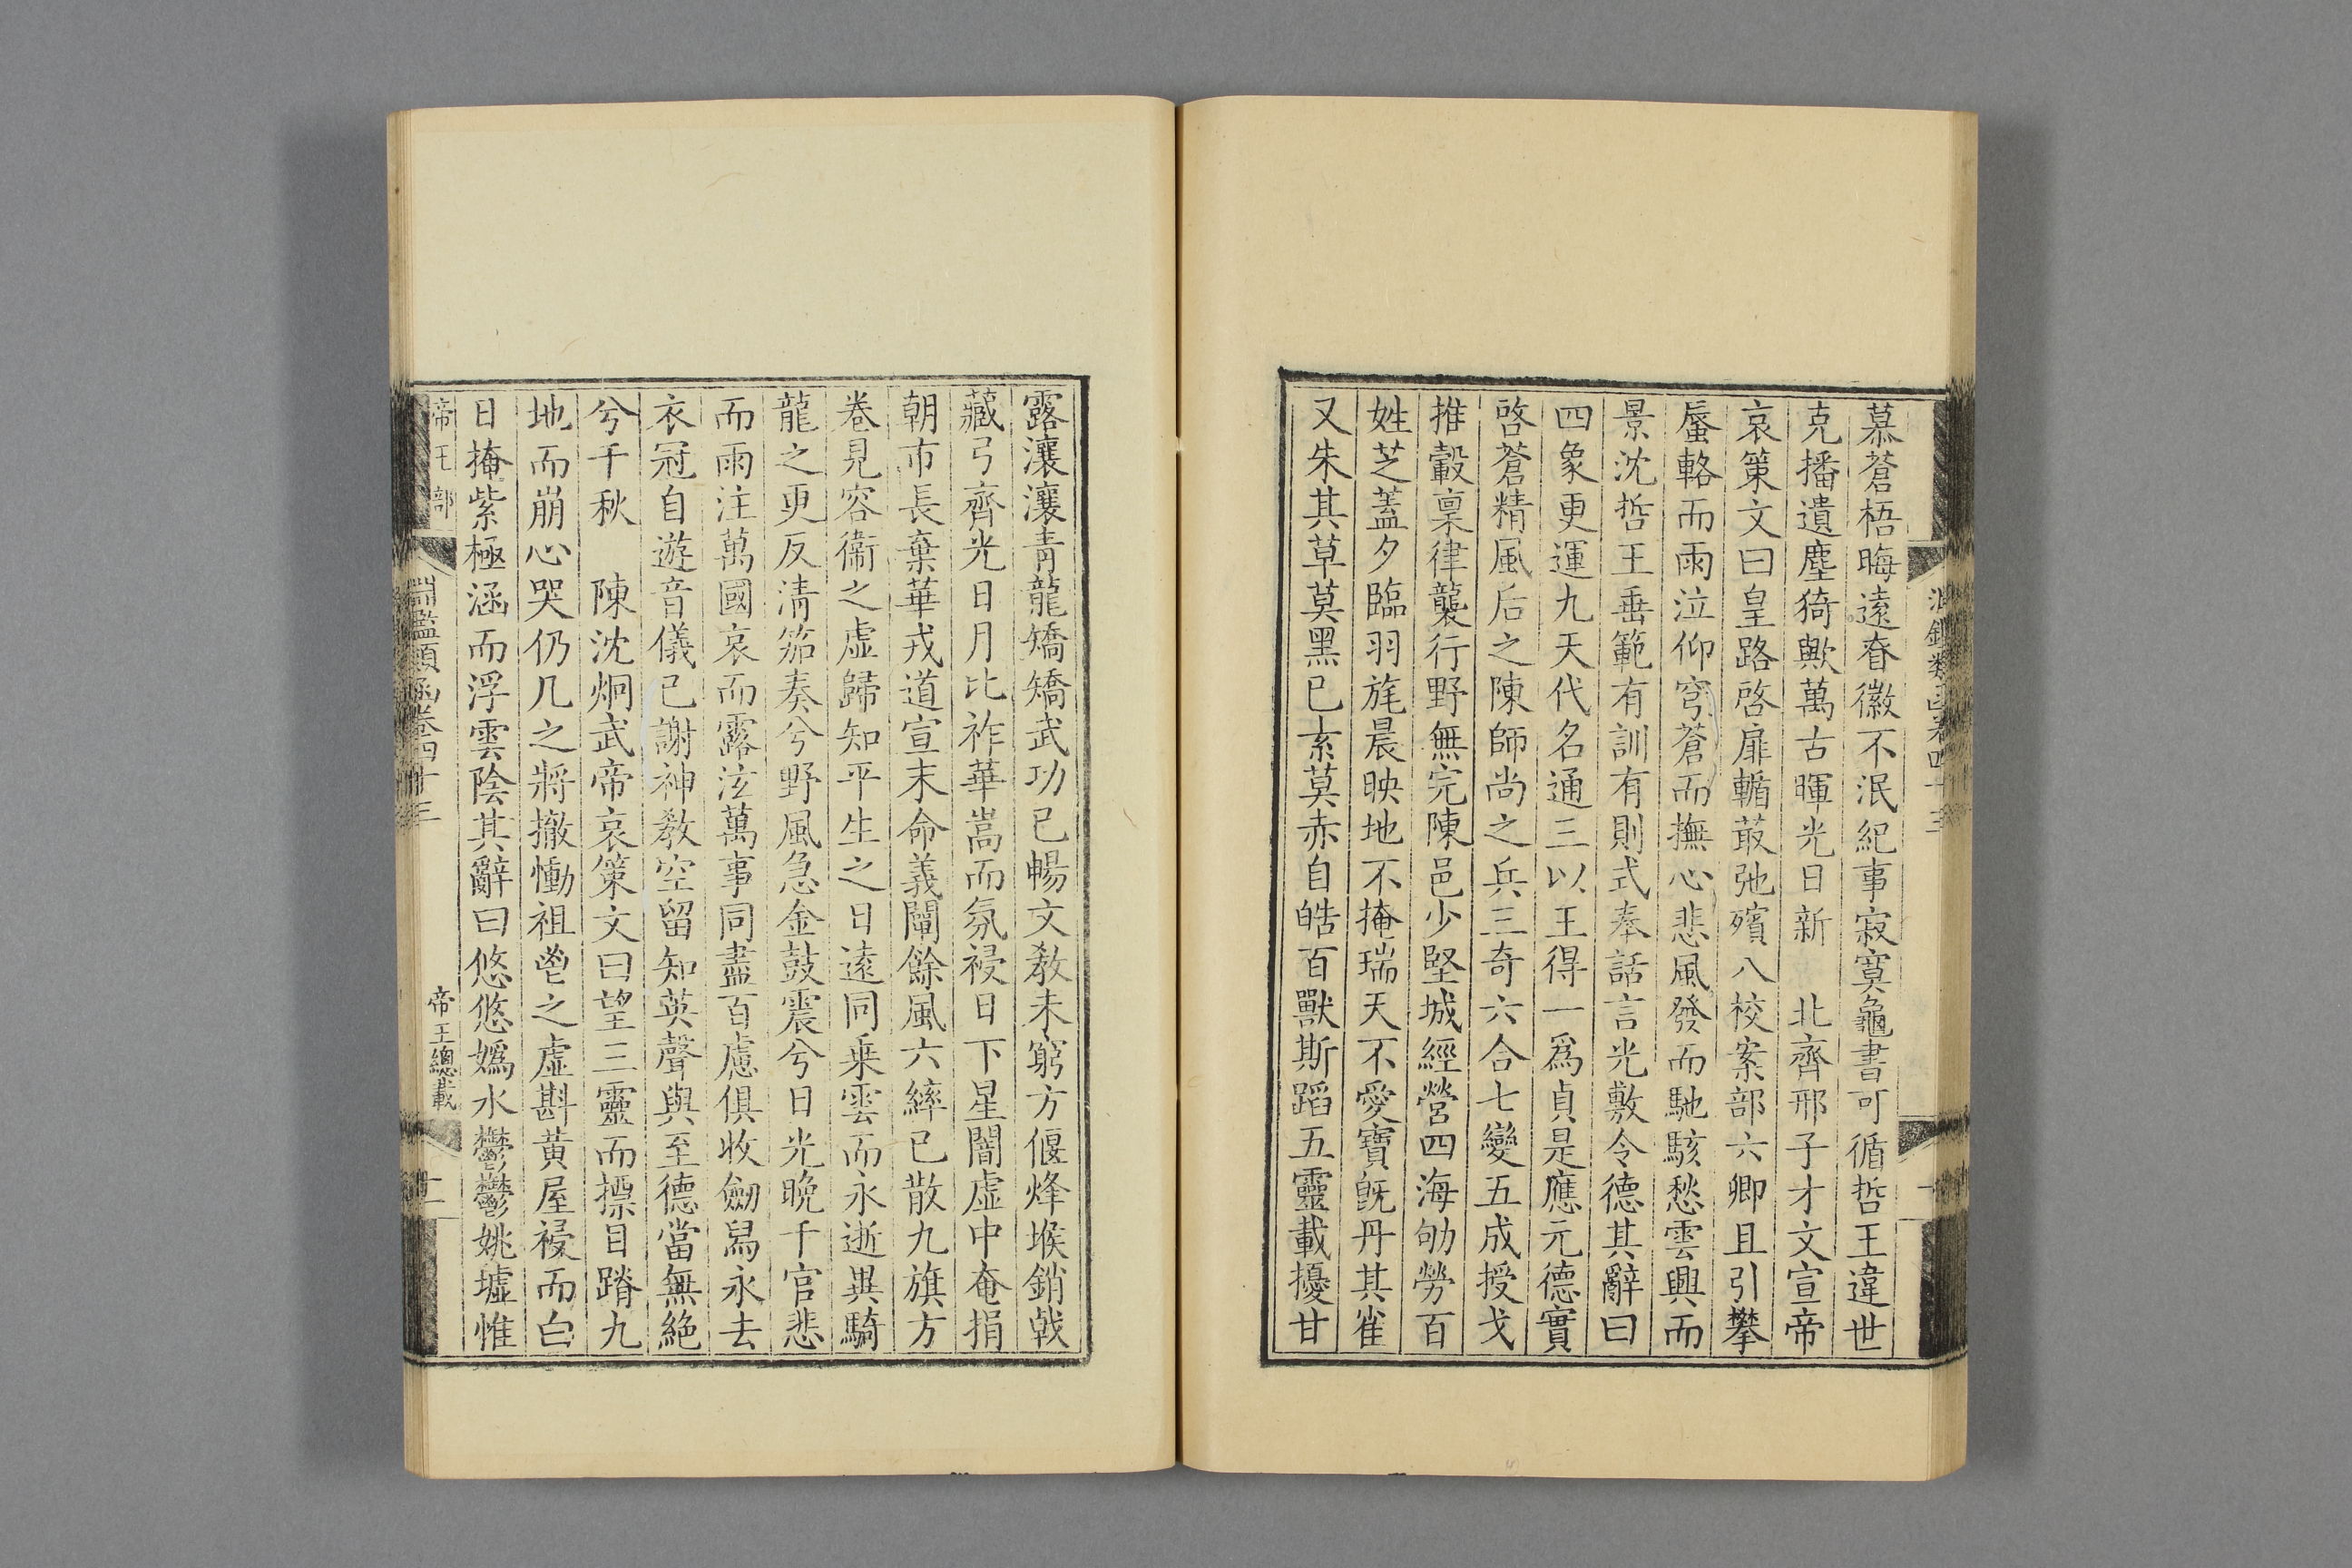 慕蒼梧晦遠眷徽不泯紀事寂寞龜書可循哲王違世
克播遺塵猗歟萬古暉光日新　北齊邢子才文宣帝
哀策文曰皇路啓扉輴菆弛殯八校案部六卿且引攀
蜃輅而雨泣仰穹蒼而撫心悲風發而馳駭愁雲興而
景沈哲王垂範有訓有則式奉話言光敷令德其辭曰
四象更運九天代名通三以王得一爲貞是應元德實
啓蒼精風后之陳師尚之兵三奇六合七變五成授戈
推轂稟律襲行野無完陳邑少堅城經營四海劬勞百
姓芝蓋夕臨羽旄晨映地不掩瑞天不愛寶旣丹其雀
又朱其草莫黑已素莫赤自皓百獸斯蹈五靈載擾甘
露瀼瀼青龍矯矯武功已暢文教未窮方偃烽堠銷戟
藏弓齊光日月比祚華嵩而氛祲日下星闇虛中奄捐
朝市長棄華戎道宣末命義闡餘風六繂已散九旗方
卷見容衞之虛歸知平生之日遠同乗雲而永逝異騎
龍之更反清笳奏兮野風急金鼓震兮日光晩千官悲
而雨注萬國哀而露泫萬事同盡百慮俱收劒舃永去
衣冠自遊音儀已謝神教空留知英聲與至德當無絶
兮千秋　陳沈炯武帝哀策文曰望三靈而摽目蹐九
地而崩心哭仍几之將撤慟祖鬯之虛斟黄屋祲而白
日掩紫極涵而浮雲陰其辭曰悠悠嬀水鬱鬱姚墟惟
帝王部
淵鑑類函卷四十三
帝王總載
二